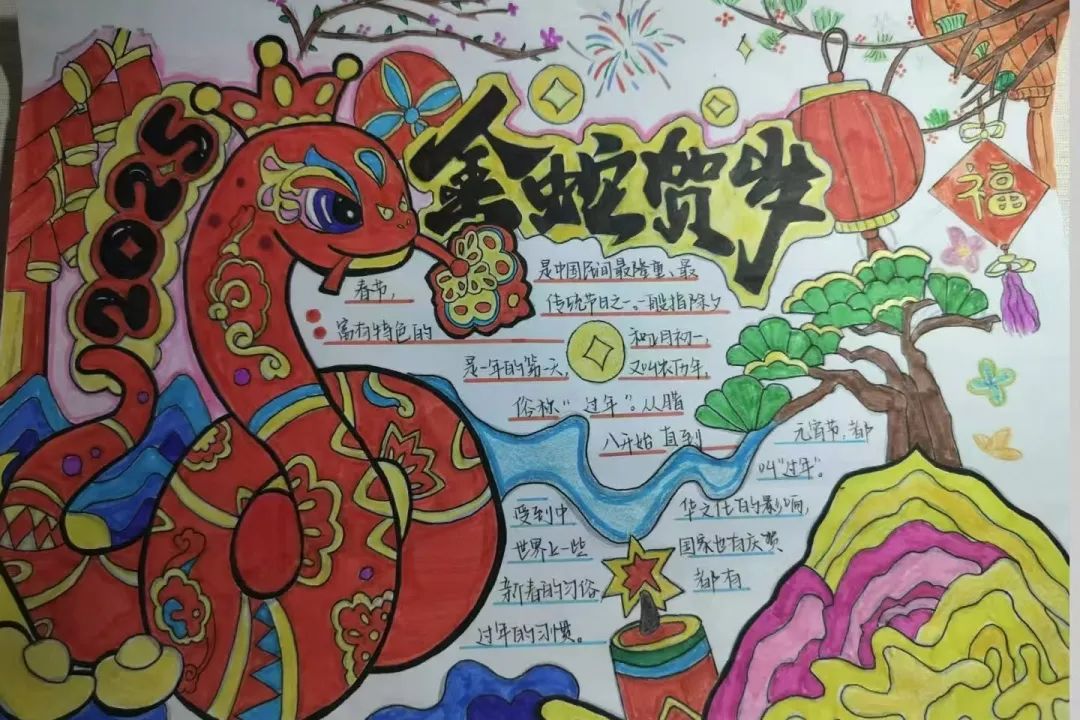 2025
金蛇贺岁
福
春节, 是中国民间最隆重、最
富有特色的 传统节日之一。一般指除夕
和正月初一,
是一年的第一天, 又叫农历年,
俗称“过年”。从腊
八开始 直到 元宵节,都
叫“过年”。
受到中 华文化的影响,
世界上一些 国家也有庆贺
新春的习俗 都有
过年的习惯。